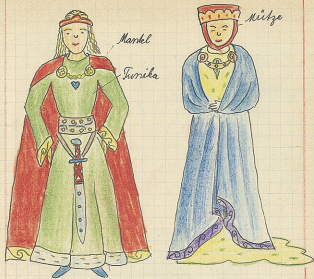 Mantel
Tunika
Mütze